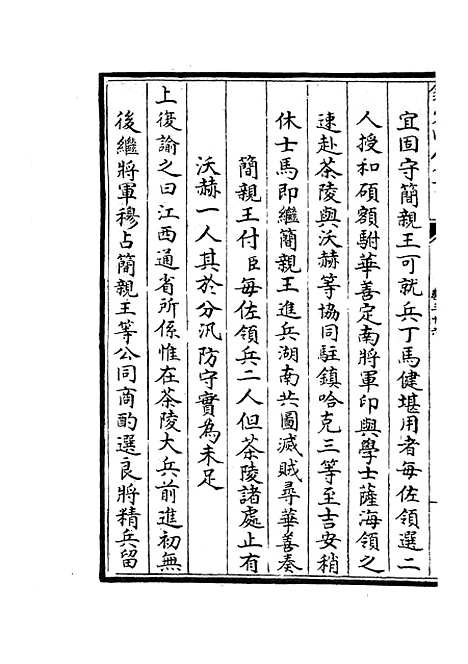 宜固守簡親王可就兵丁馬健堪用者每佐領選二
人授和碩額駙華善定南將軍印與學士薩海領之
速赴茶陵與沃赫等協同駐鎮哈克三等至吉安稍
休士馬即繼簡親王進兵湖南共圖滅賊尋華善奏
簡親王付臣每佐領兵二人但茶陵諸處止有
沃赫一人其於分汛防守實為未足
上復諭之曰江西通省所係惟在茶陵大兵前進初無
後繼將軍穆占簡親王等公同商酌選良將精兵留